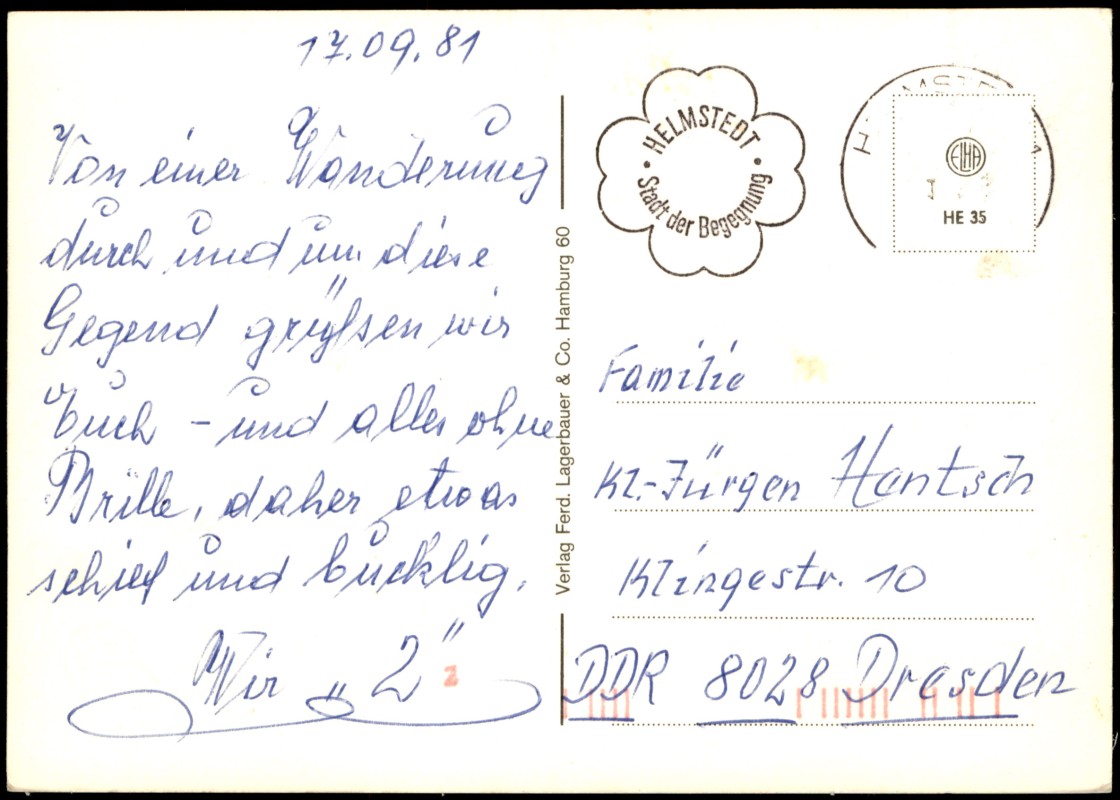 17.09.81
Von einer Wanderung
durch und um diese
Gegend grüßen wir
Euch - und alles ohne
Brille, daher etwas
schief und bucklig.
Wir „2"
z
Verlag Ferd. Lagerbauer & Co. Hamburg 60
• HELMSTEDT •
Stadt der Begegnung
ELHA
HE 35
Familie
Kl.-Jürgen Hentsch
Klingestr. 10
DDR 8028 Dresden